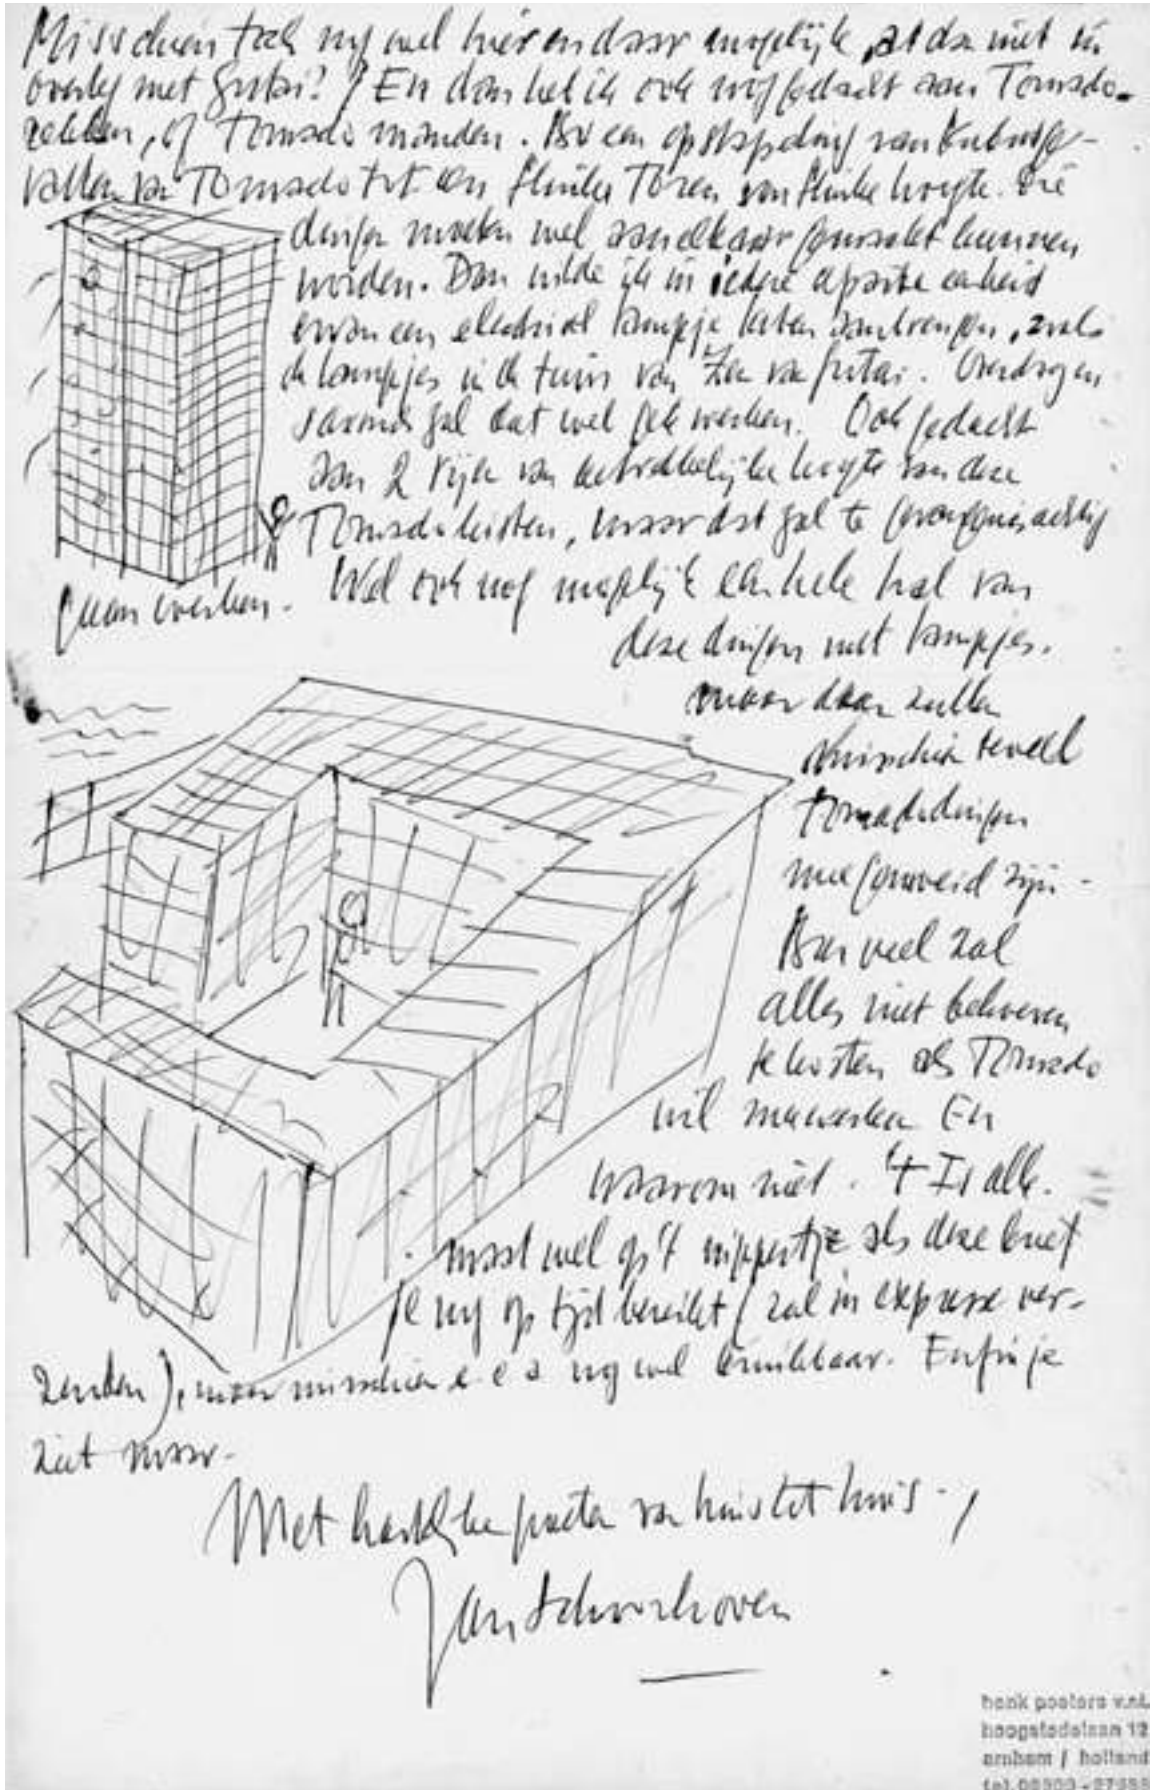 Misschien toch nog wel hier en daar mogelijk, al dan niet in
overleg met Gutai? / En dan heb ik ook nog gedacht aan Tomado-
rekken, of Tomado manden. Bv een opstapeling van
van Tomado tot een flinke Toren van flinke hoogte. Die
dingen moeten wel aan elkaar gemaakt kunnen
worden. Dan wilde ik in iedere aparte eenheid
ervan een electrisch lampje laten aanbrengen, zoals
de lampjes in de tuin van Zen van Gutai. Overdag en
savonds zal dat wel gek werken. Ook gedacht
aan 2 rijen van betrekkelijke hoogte van deze
Tomado kisten, maar dat zal te
gaan werken. Wel ook nog mogelijk een hele hal van
deze dingen met lampjes.
maar daar zullen
misschien teveel
Tomadodingen
mee gemoeid zijn -
Bar veel zal
alles niet behoeven
te kosten als Tomado
wil meewerken En
waarom niet. 't Is alle-
maal wel op 't nippertje als deze brief
je nog op tijd bereikt (zal m expresse ver-
zenden), maar misschien e e a nog wel bruikbaar. Enfin je
ziet maar-
Met hartelijke groeten van huis tot huis -,
Jan Schoonhoven
henk peeters v.n.l.
hoogstedelaan 12
arnhem / holland